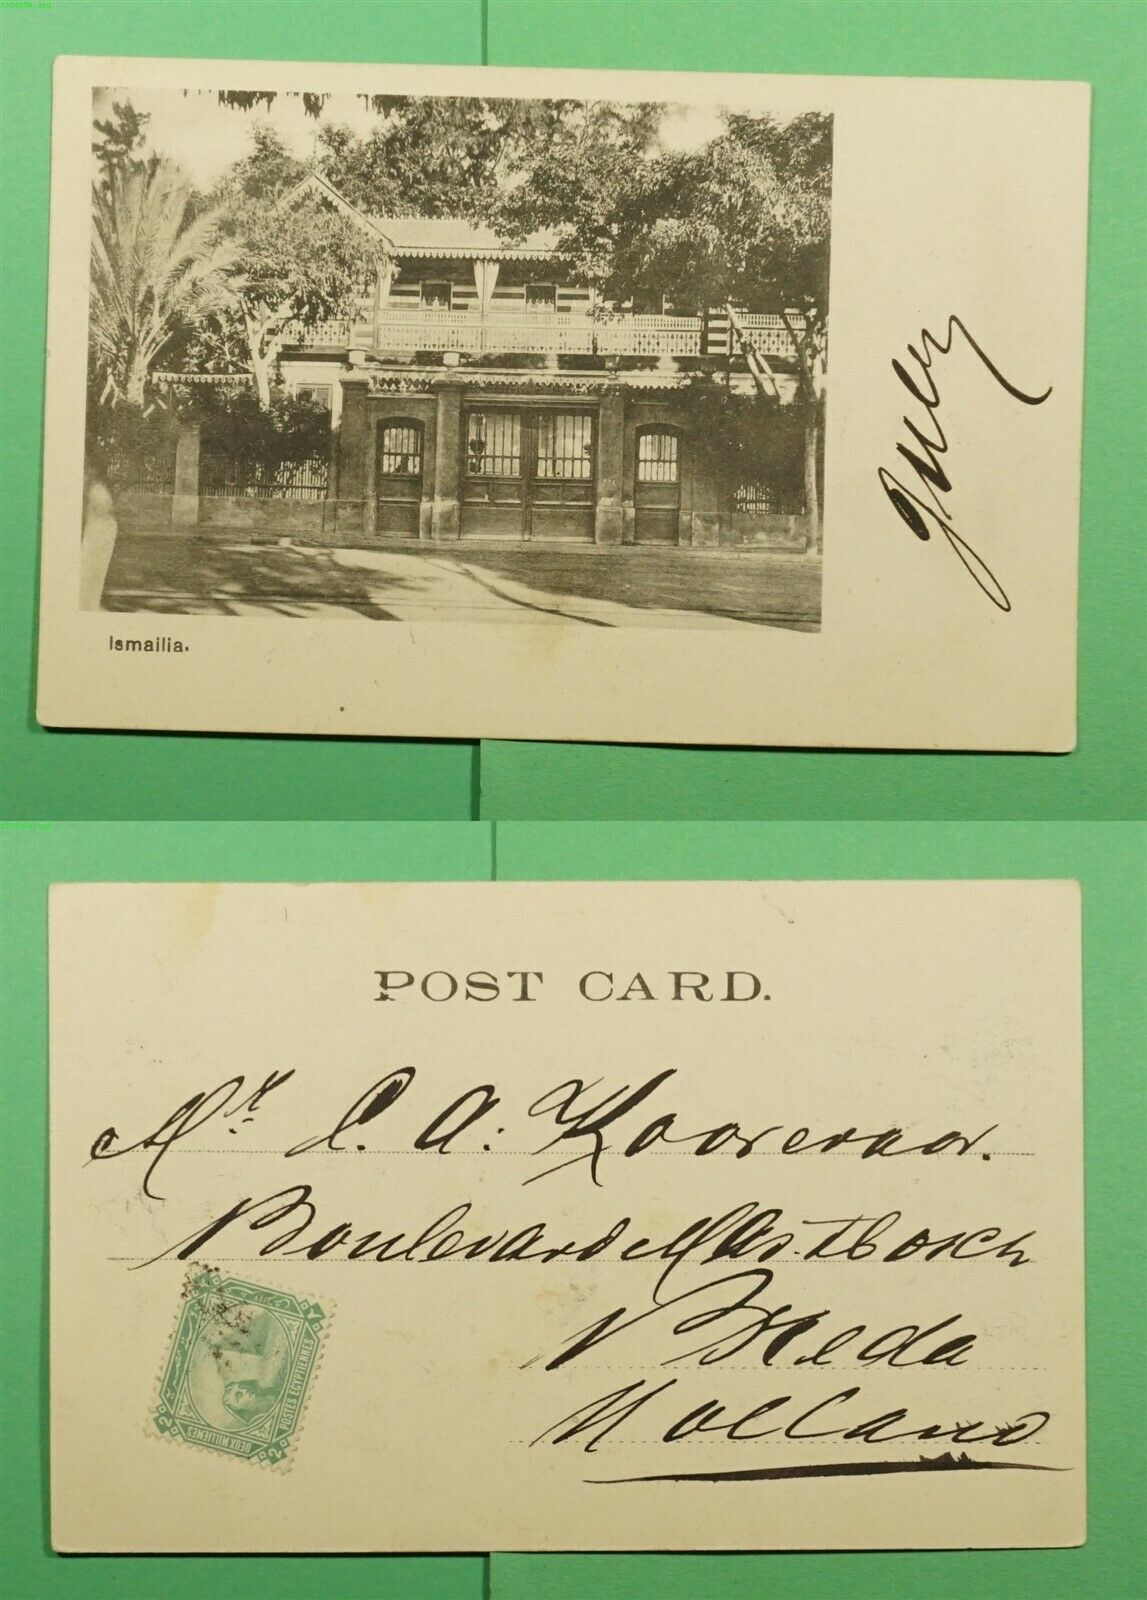 Ismailia.
POST CARD.
Mr. C. A. Koorevaar.
Boulevard Mastbosch
Breda
Holland
POSTES EGYPTIENNES
DEUX MILLIEMES
2 2